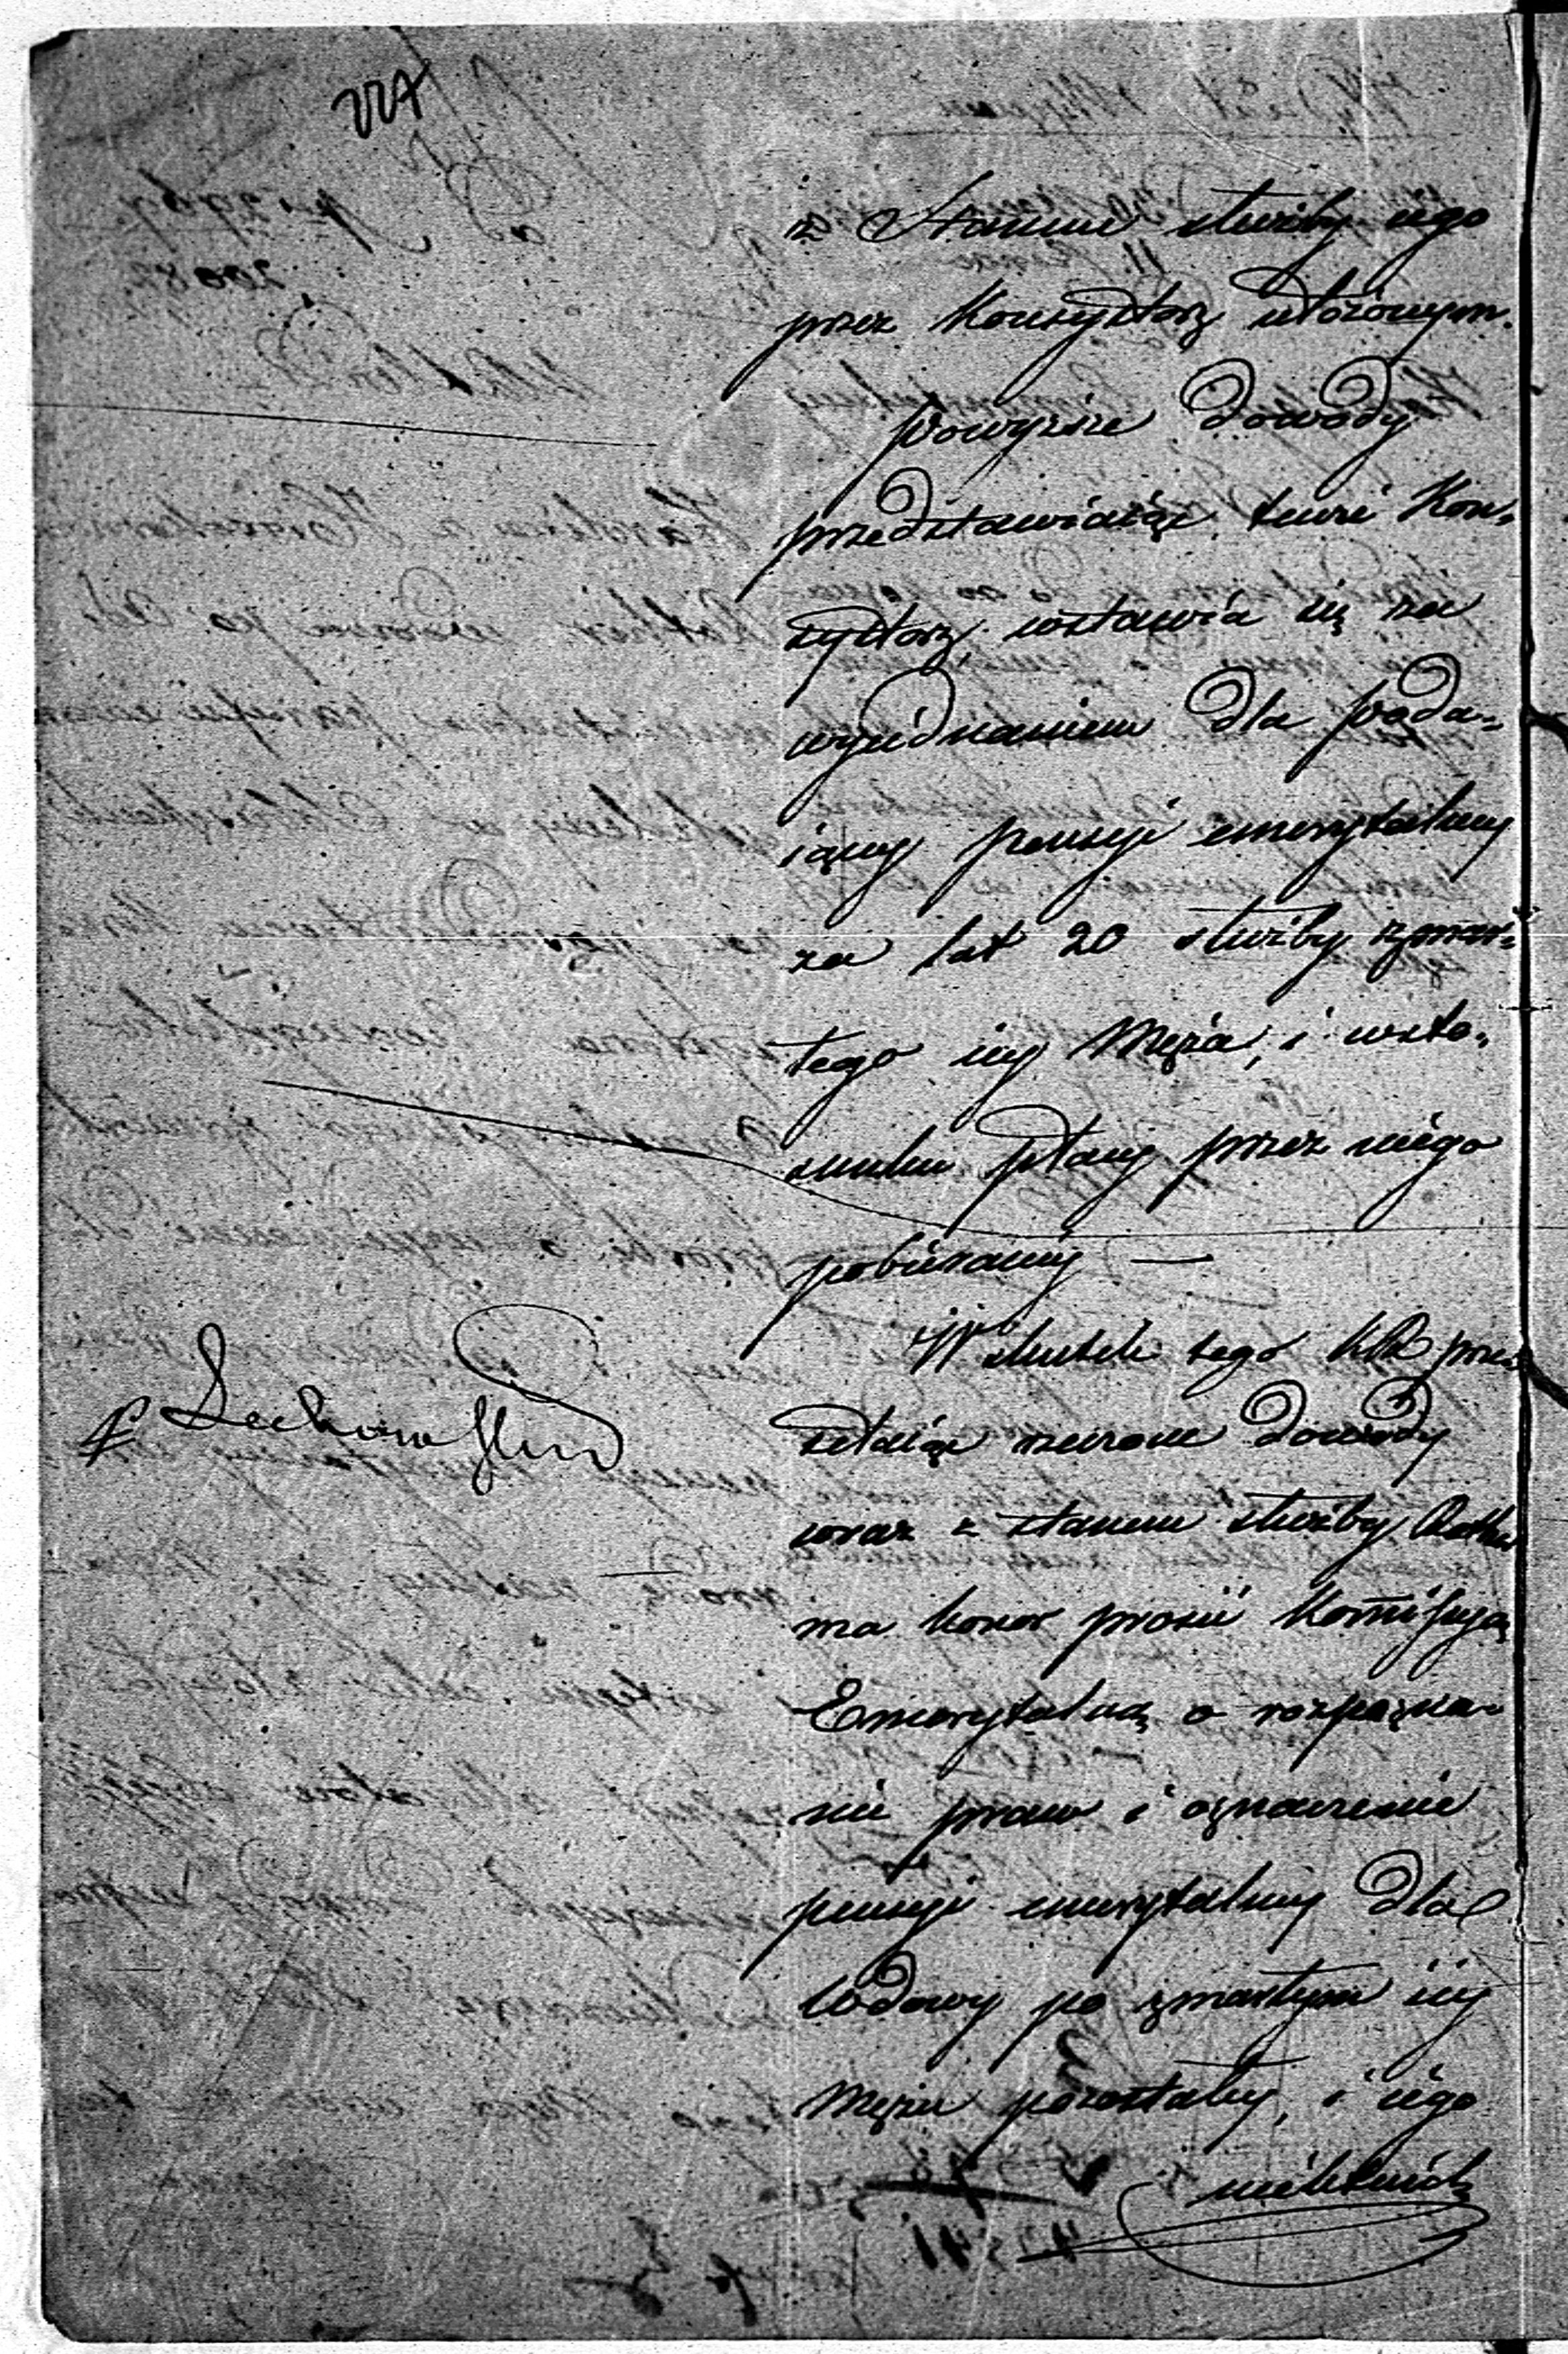 z Stanem służby iego
przez Konsystorz ułożonym.
Powyższe dowody
przedstawiaiąc tenże Kon-
systorz, wstawia się za
wyiednaniem dla poda-
iącey pensyi emerytalney
za lat 20 służby zmar-
łego iey Męża, i w sto-
sunku płacy przez niego
pobieraney —
W skutek tego KR prze
syłaiąc rzeczone dowody
wraz z stanem służby
ma honor prosić Kommissyą
Emerytalną o rozpozna-
nie praw i oznaczenie
pensyi emerytalney dla
Wdowy po zmarłym iey
Mężu pozostałey, i iego